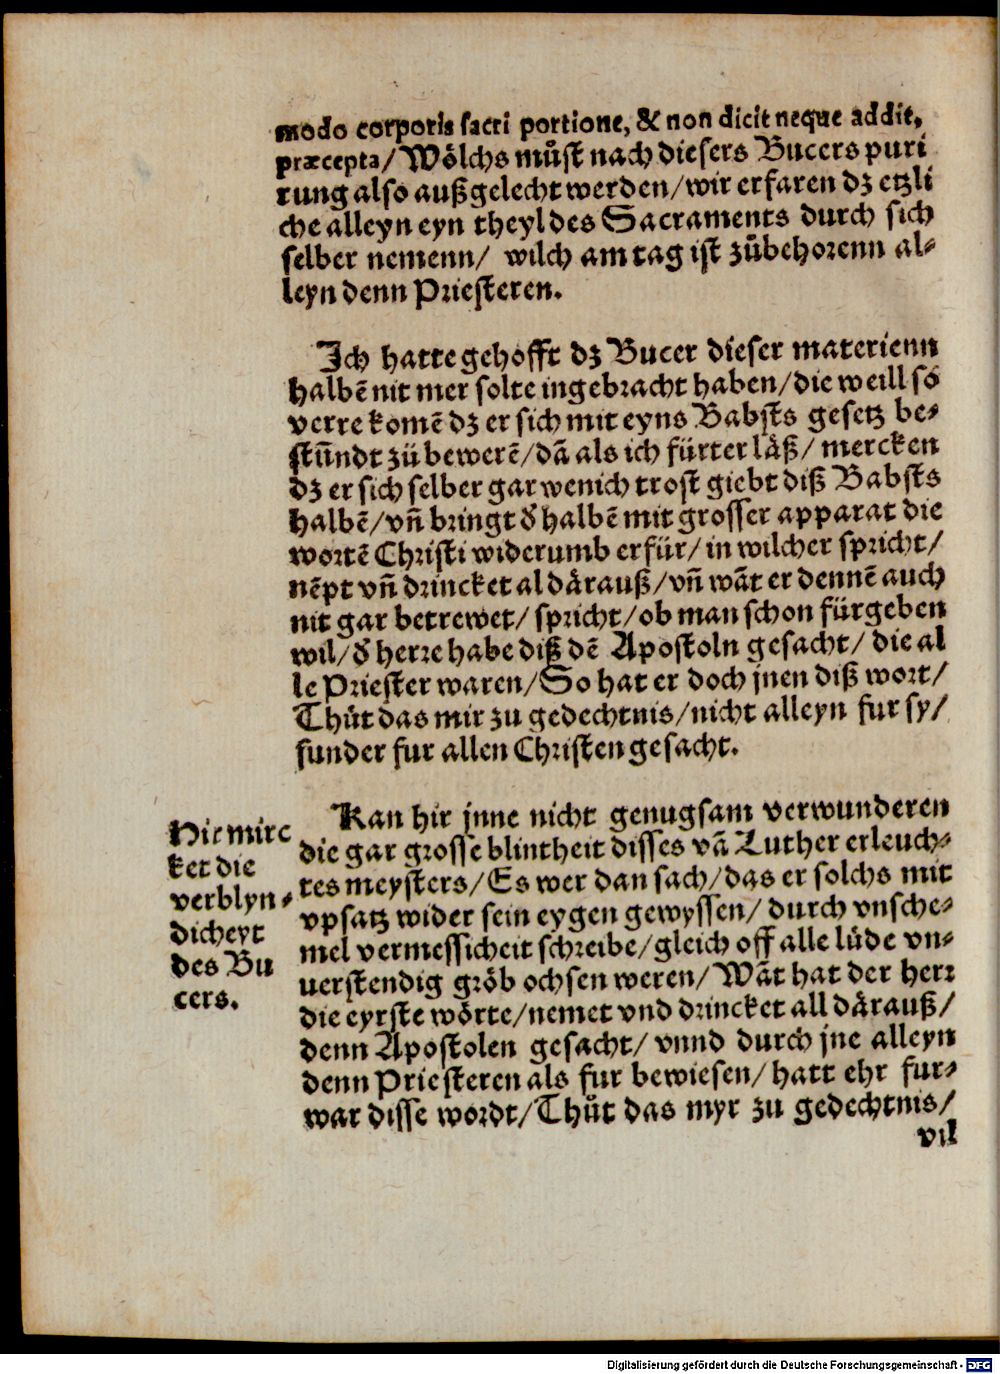 modo corporis sacri portione, & non dicit neque addit,
præcepta/ Wölchs můst nach diesers Bucers puri
rung also außgelecht werden/ wir erfaren dz etzli
che alleyn eyn theyl des Sacraments durch sich
selber nemenn/ wilch am tag ist zůbehorenn al-
leyn denn Priesteren.
Ich hatte gehofft dz Bucer dieser materienn
halbē nit mer solte ingebracht haben/ die weill so
verre komē dz er sich mit eyns Babsts gesetz be-
stůndt zü bewerē/ dā als ich fürter läß/ mercken
dz er sich selber gar wenich trost giebt diß Babsts
halbē/ vñ bringt d̕ halbē mit grosser apparat die
wortē Christi widerumb erfür/ in wilcher spricht/
nēpt vñ drincket al dårauß/ vñ wāt er dennē auch
nit gar betrewet/ spricht/ ob man schon fürgeben
wil/ d̕ herre habe diß dē Apostoln gesacht/ die al
le Priester waren/ So hat er doch jnen diß wort/
Thůt das mir zu gedechtnis/ nicht alleyn fur sy/
sunder fur allen Christen gesacht.
Kan hir jnne nicht genugsam verwunderen
die gar grosse blintheit disses vā Luther erleuch-
tes meysters/ Es wer dan sach/ das er solchs mit
vpsatz wider sein eygen gewyssen/ durch vnsche-
mel vermessicheit schreibe/ gleich off alle lůde vn-
uerstendig gröb ochsen weren/ Wāt hat der herr
die eyrste wörte/ nemet vnd drincket all dårauß/
denn Apostolen gesacht/ vnnd durch jne alleyn
denn Priesteren als fur bewiesen/ hatt ehr fur-
war disse wordt/ Thůt das myr zu gedechtnis/
vil
Hie mirc
ket die
verblyn-
dicheyt
des Bu
cers.
Digitalisierung gefördert durch die Deutsche Forschungsgemeinschaft - DFG